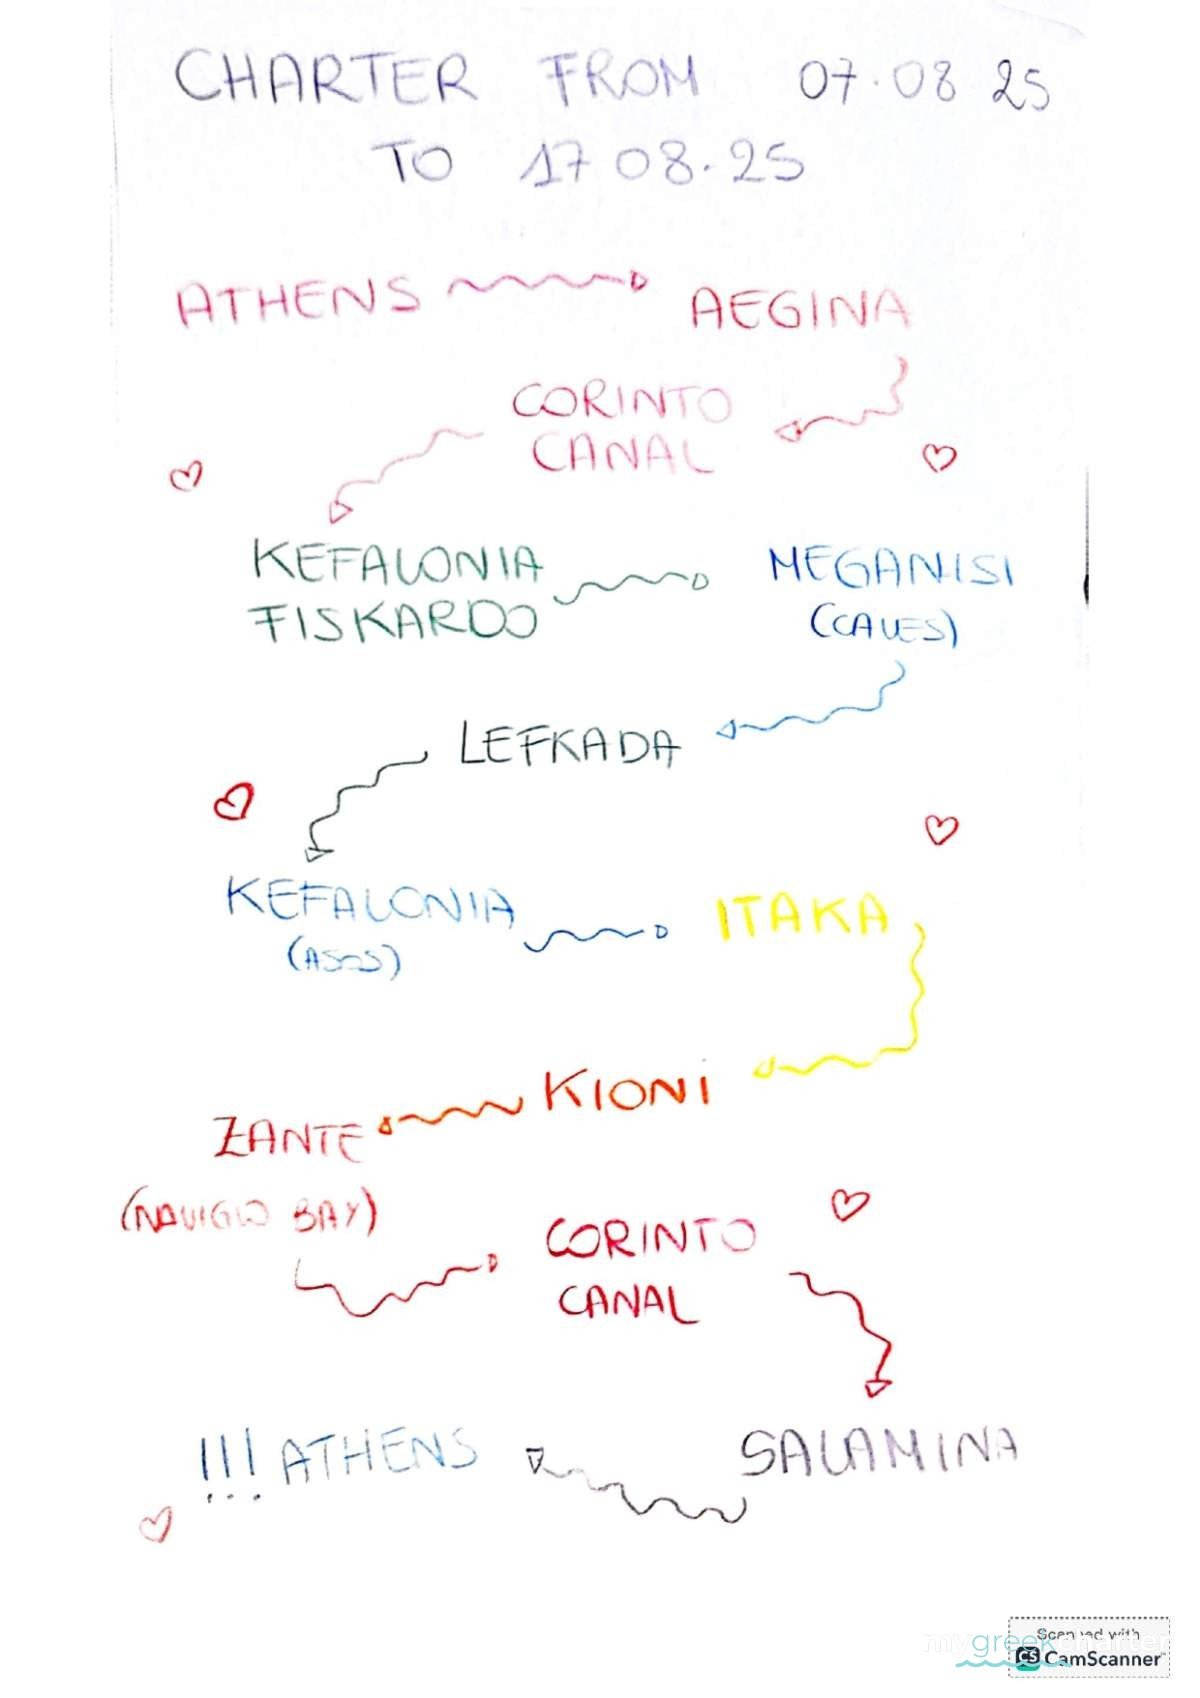 CHARTER FROM 07.08 25
TO 17 08.25
ATHENS
AEGINA
CORINTO
CANAL
KEFALONIA
FISKARDO
MEGANISI
(CAVES)
LEFKADA
KEFALONIA
(ASOS)
ITAKA
KIONI
ZANTE
(NAVIGIO BAY)
CORINTO
CANAL
SALAMINA
!!! ATHENS
Scanned with
mygreekcharter
CS CamScanner